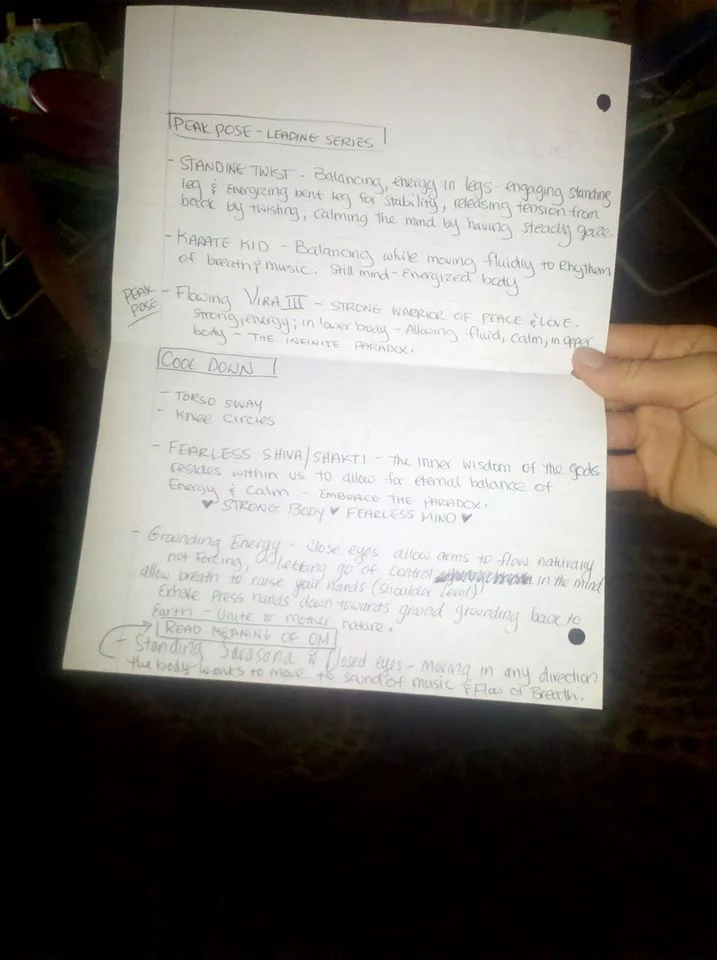 PEAK POSE - LEADING SERIES
- STANDING TWIST - Balancing, energy in legs - engaging standing
leg & energizing bent leg for stability, releasing tension from
back by twisting, calming the mind by having steady gaze.
- KARATE KID - Balancing while moving fluidly to Rhythm
of breath & music. Still mind - energized body
PEAK POSE - Flowing VIRA III - STRONG WARRIOR OF PEACE & LOVE.
Strong, energy; in lower body - Allowing fluid, calm; in upper
body - THE INFINITE PARADOX.
COOL DOWN
- TORSO SWAY
- Knee Circles
- FEARLESS SHIVA/SHAKTI - the inner wisdom of the gods
resides within us to allow for eternal balance of
Energy & Calm - EMBRACE THE PARADOX.
♥ STRONG BODY ♥ FEARLESS MIND ♥
- Grounding Energy - Close eyes allow arms to flow naturally
not Forcing, letting go of control in the mind
allow breath to raise your hands (shoulder level)
Exhale Press hands down towards ground grounding back to
Earth - Unite mother nature.
READ MEANING OF OM
- Standing Savasana Closed eyes - moving in any direction
the body wants to move to sound of music & Flow of Breath.